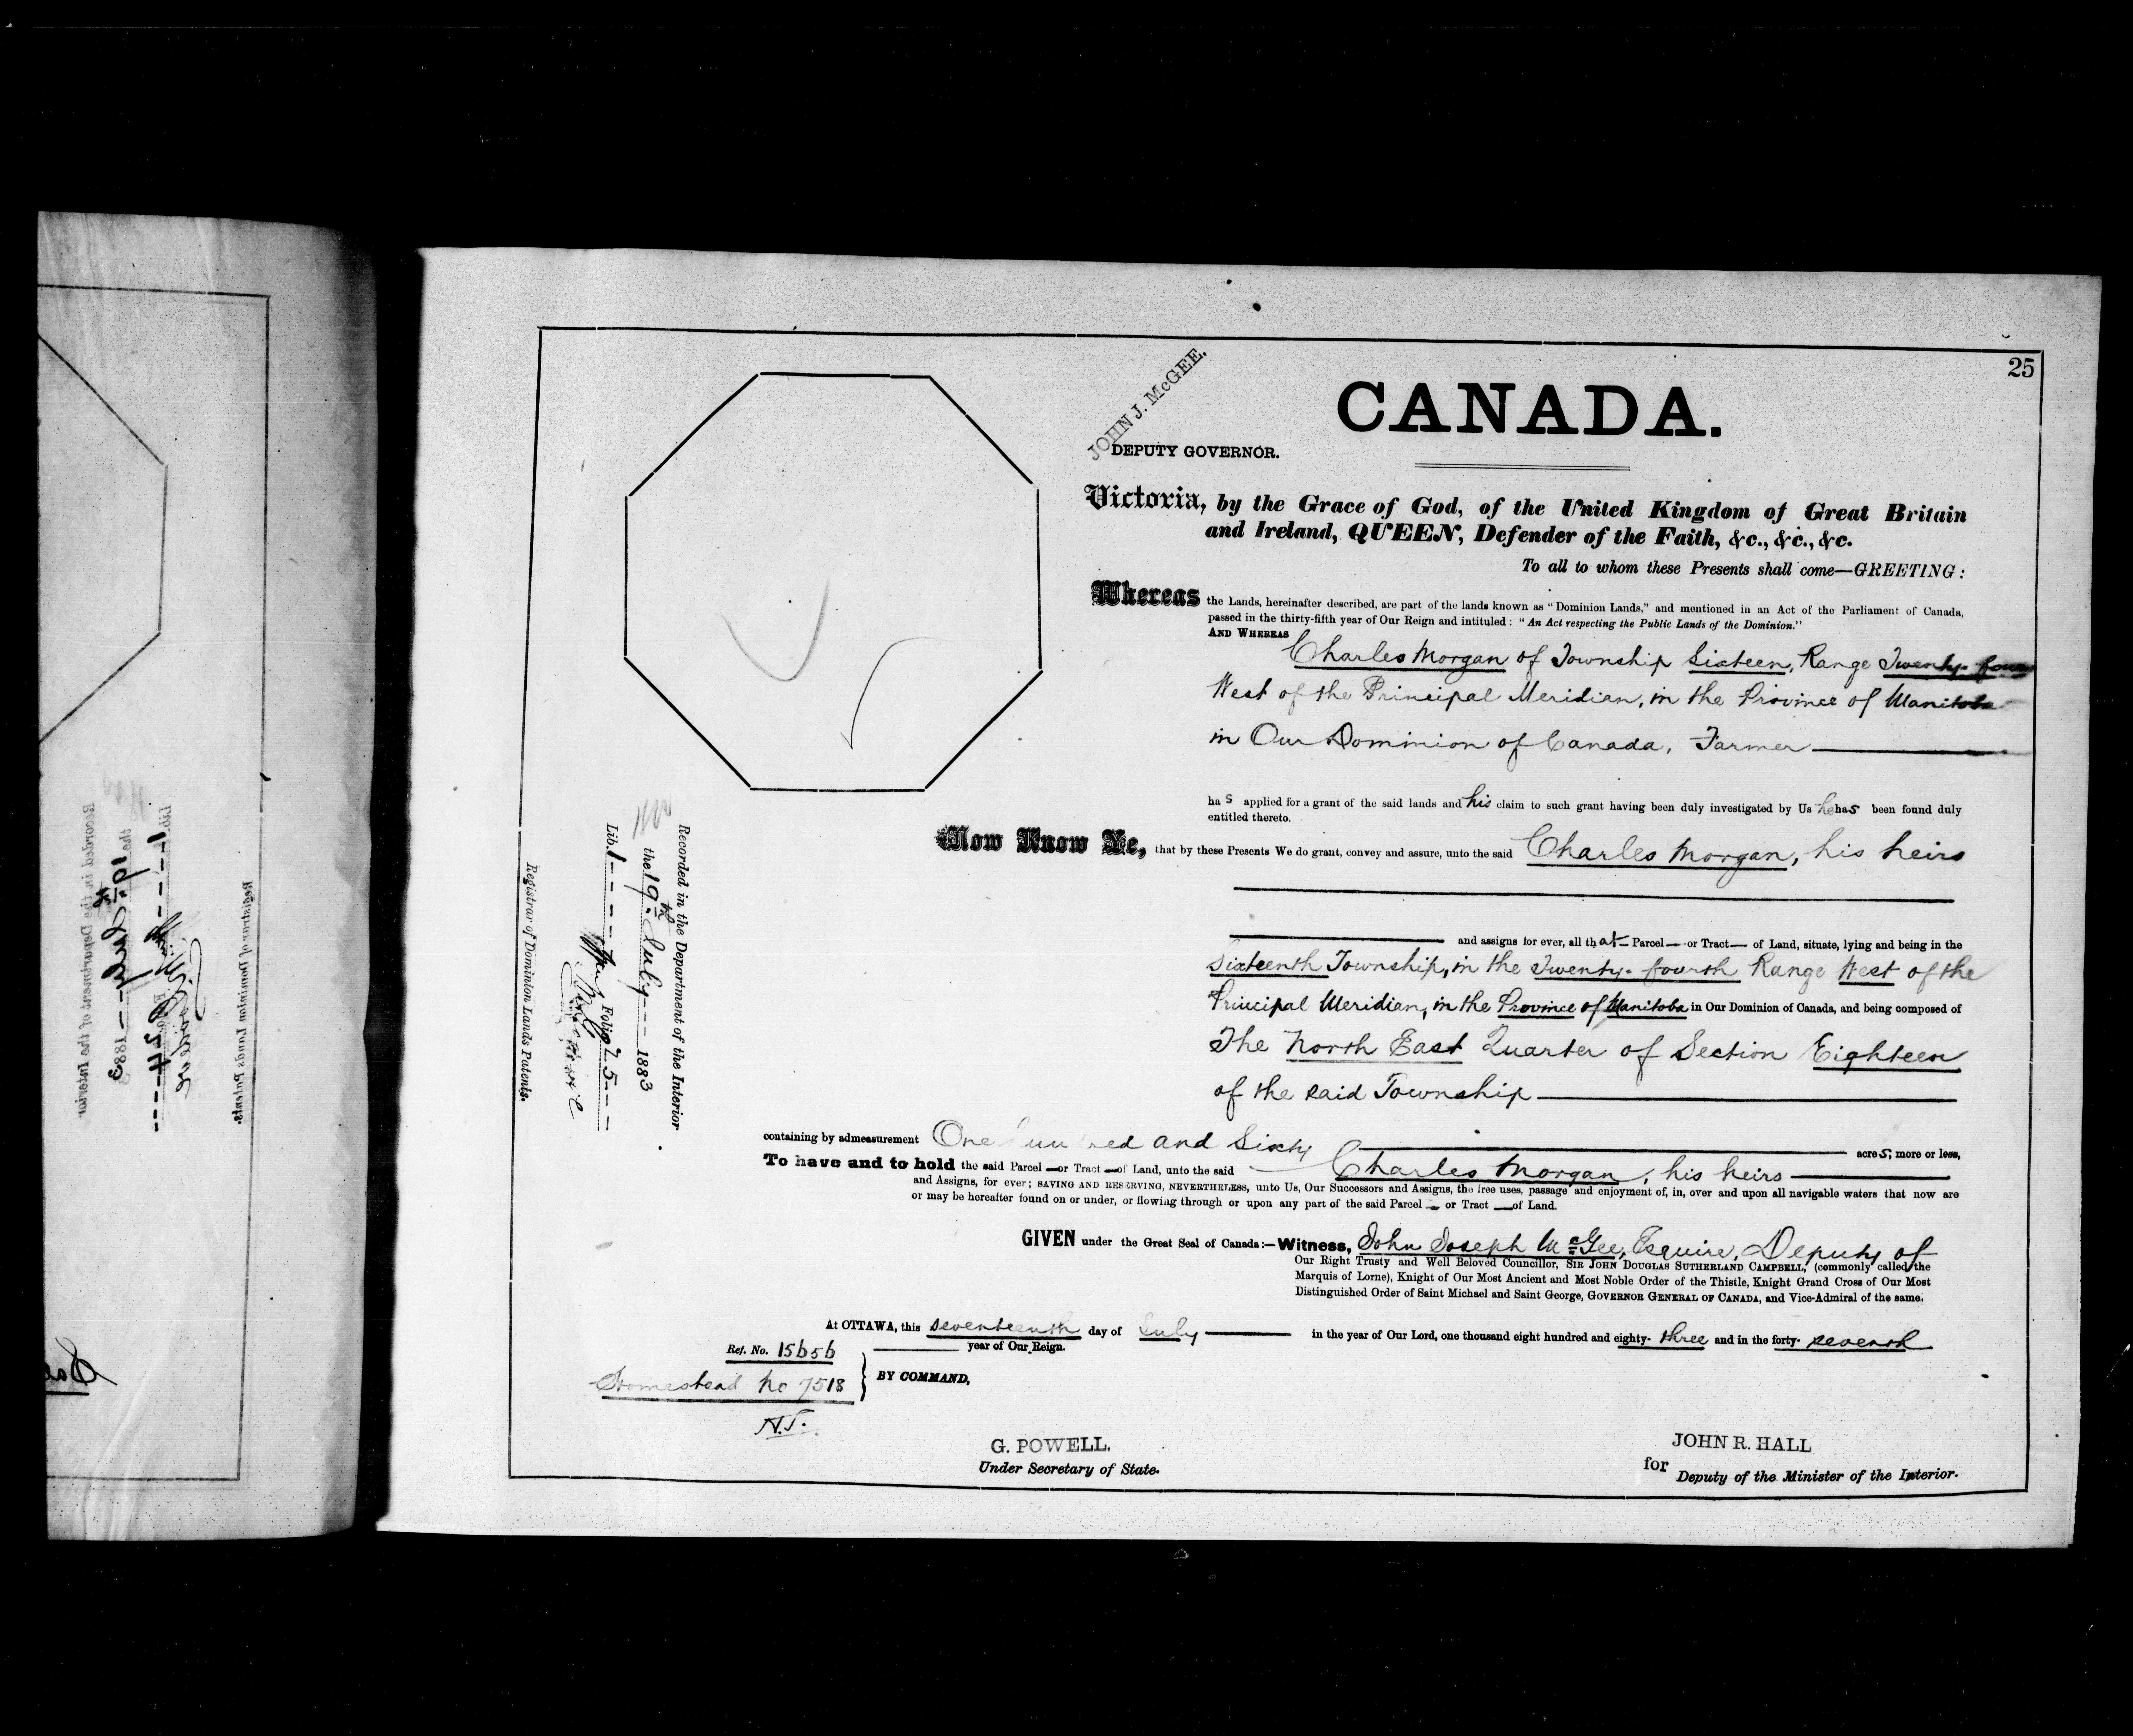 25
CANADA.
JOHN J. McGEE.
DEPUTY GOVERNOR.
Victoria, by the Grace of God, of the United Kingdom of Great Britain
and Ireland, QUEEN, Defender of the Faith, &c., &c., &c.
To all to whom these Presents shall come—GREETING:
Whereas the Lands, hereinafter described, are part of the lands known as "Dominion Lands," and mentioned in an Act of the Parliament of Canada,
passed in the thirty-fifth year of Our Reign and intituled: "An Act respecting the Public Lands of the Dominion."
AND WHEREAS
Charles Morgan of Township Sixteen, Range Twenty-four
West of the Principal Meridian, in the Province of Manitoba
in Our Dominion of Canada, Farmer
has applied for a grant of the said lands and his claim to such grant having been duly investigated by Us he has been found duly
entitled thereto.
Now Know Ye, that by these Presents We do grant, convey and assure, unto the said Charles Morgan, his heirs
and assigns for ever, all that Parcel — or Tract — of Land, situate, lying and being in the
Sixteenth Township, in the Twenty-fourth Range West of the
Principal Meridian, in the Province of Manitoba in Our Dominion of Canada, and being composed of
The North East Quarter of Section Eighteen
of the said Township
containing by admeasurement One hundred and Sixty acres, more or less,
To have and to hold the said Parcel — or Tract — of Land, unto the said Charles Morgan, his heirs
and Assigns, for ever; SAVING AND RESERVING, NEVERTHELESS, unto Us, Our Successors and Assigns, the free uses, passage and enjoyment of, in, over and upon all navigable waters that now are
or may be hereafter found on or under, or flowing through or upon any part of the said Parcel — or Tract — of Land.
GIVEN under the Great Seal of Canada:—Witness, John Joseph McGee, Esquire, Deputy of
Our Right Trusty and Well Beloved Councillor, SIR JOHN DOUGLAS SUTHERLAND CAMPBELL, (commonly called the
Marquis of Lorne), Knight of Our Most Ancient and Most Noble Order of the Thistle, Knight Grand Cross of Our Most
Distinguished Order of Saint Michael and Saint George, GOVERNOR GENERAL OF CANADA, and Vice-Admiral of the same.
At OTTAWA, this seventeenth day of July in the year of Our Lord, one thousand eight hundred and eighty-three and in the forty-seventh
year of Our Reign.
Ref. No. 15656
Homestead No 7518
N.T.
BY COMMAND,
G. POWELL.
Under Secretary of State.
JOHN R. HALL
for Deputy of the Minister of the Interior.
Recorded in the Department of the Interior
the 19th July 1883
Lib. 1 Folio 25
Registrar of Dominion Lands Patents.